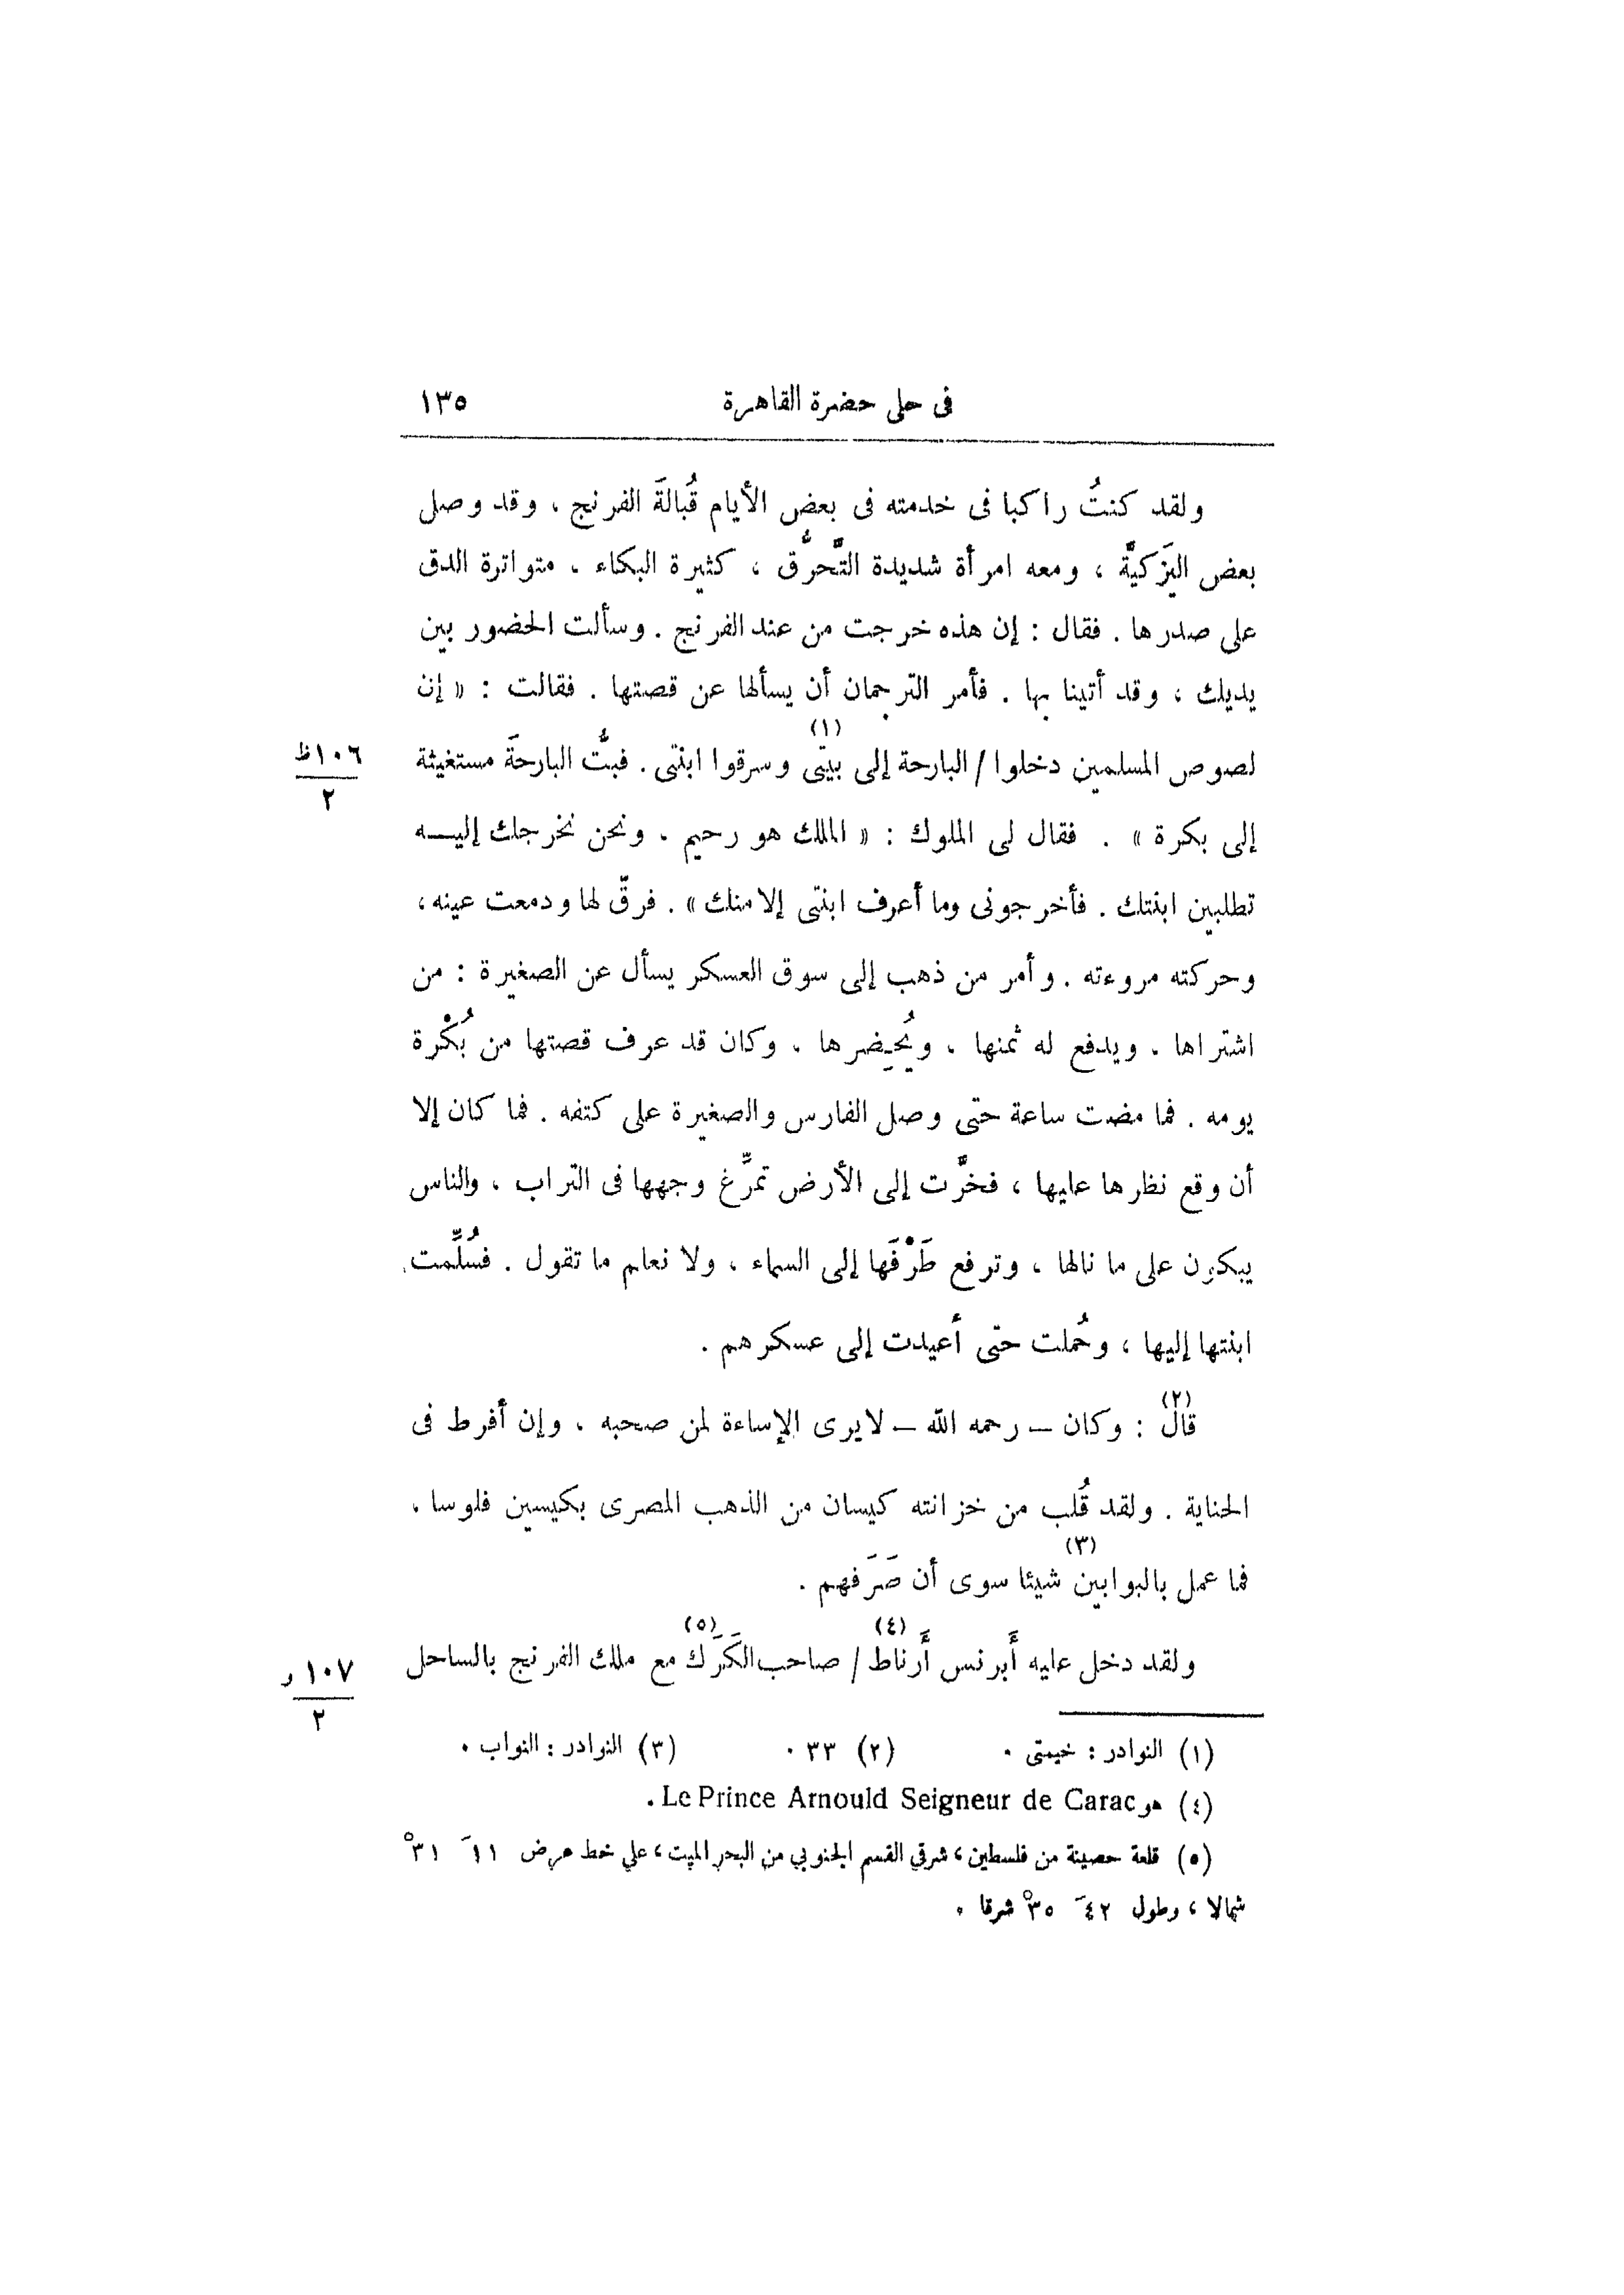 فى حلى حضرة القاهرة ١٣٥
ولقد كنتُ راكبا فى خدمته فى بعض الأيام قُبالةَ الفرنج ، وقد وصل
بعض اليَزَكيَّة ، ومعه امرأة شديدة التَّحَرُّق ، كثيرة البكاء ، متواترة الدق
على صدرها . فقال : إن هذه خرجت من عند الفرنج . وسألت الحضور بين
يديك ، وقد أتينا بها . فأمر الترجمان أن يسألها عن قصتها . فقالت : « إن
لصوص المسلمين دخلوا / البارحة إلى بيتى (١) وسرقوا ابنتى . فبتُّ البارحةَ مستغيثة
١٠٦ظ
٢
إلى بكرة » . فقال لى الملوك : « الملك هو رحيم ، ونحن نخرجك إليـــه
تطلبين ابنتك . فأخرجونى وما أعرف ابنتى إلا منك » . فرقّ لها ودمعت عينه ،
وحركته مروءته . وأمر من ذهب إلى سوق العسكر يسأل عن الصغيرة : من
اشتراها ، ويدفع له ثمنها ، ويُحضِرها ، وكان قد عرف قصتها من بُكْرة
يومه . فما مضت ساعة حتى وصل الفارس والصغيرة على كتفه . فما كان إلا
أن وقع نظرها عليها ، فخرَّت إلى الأرض تمرِّغ وجهها فى التراب ، والناس
يبكون على ما نالها ، وترفع طَرْفَها إلى السماء ، ولا نعلم ما تقول . فسُلِّمت
ابنتها إليها ، وحُملت حتى أُعيدت إلى عسكرهم .
قال (٢) : وكان — رحمه الله — لا يرى الإساءة لمن صحبه ، وإن أفرط فى
الجناية . ولقد قُلب من خزانته كيسان من الذهب المصرى بكيسين فلوسا ،
فما عمل بالبوابين (٣) شيئا سوى أن صَرَفهم .
ولقد دخل عليه أَبرنس أَرناط (٤) / صاحب الكَرَك (٥) مع ملك الفرنج بالساحل
١٠٧ و
٢
(١) النوادر : خيمتى . (٢) ٣٣ . (٣) النوادر : النواب .
(٤) هو Le Prince Arnould Seigneur de Carac .
(٥) قلعة حصينة من فلسطين ، شرقي القسم الجنوبي من البحر الميت ، علي خط عرض ١١َ ٣١ْ
شمالا ، وطول ٤٢َ ٣٥ْ شرقا .